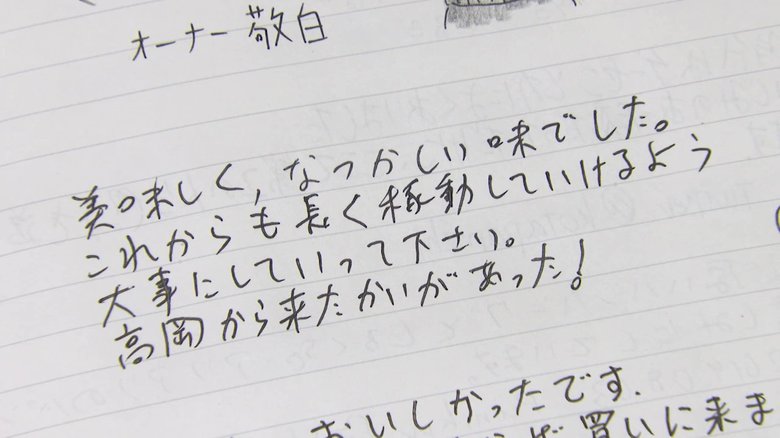 オーナー敬白
美味しく,なつかしい味でした。
これからも長く稼動していけるよう
大事にしていって下さい。
高岡から来たかいがあった!
おいしかったです.
買いに来ま